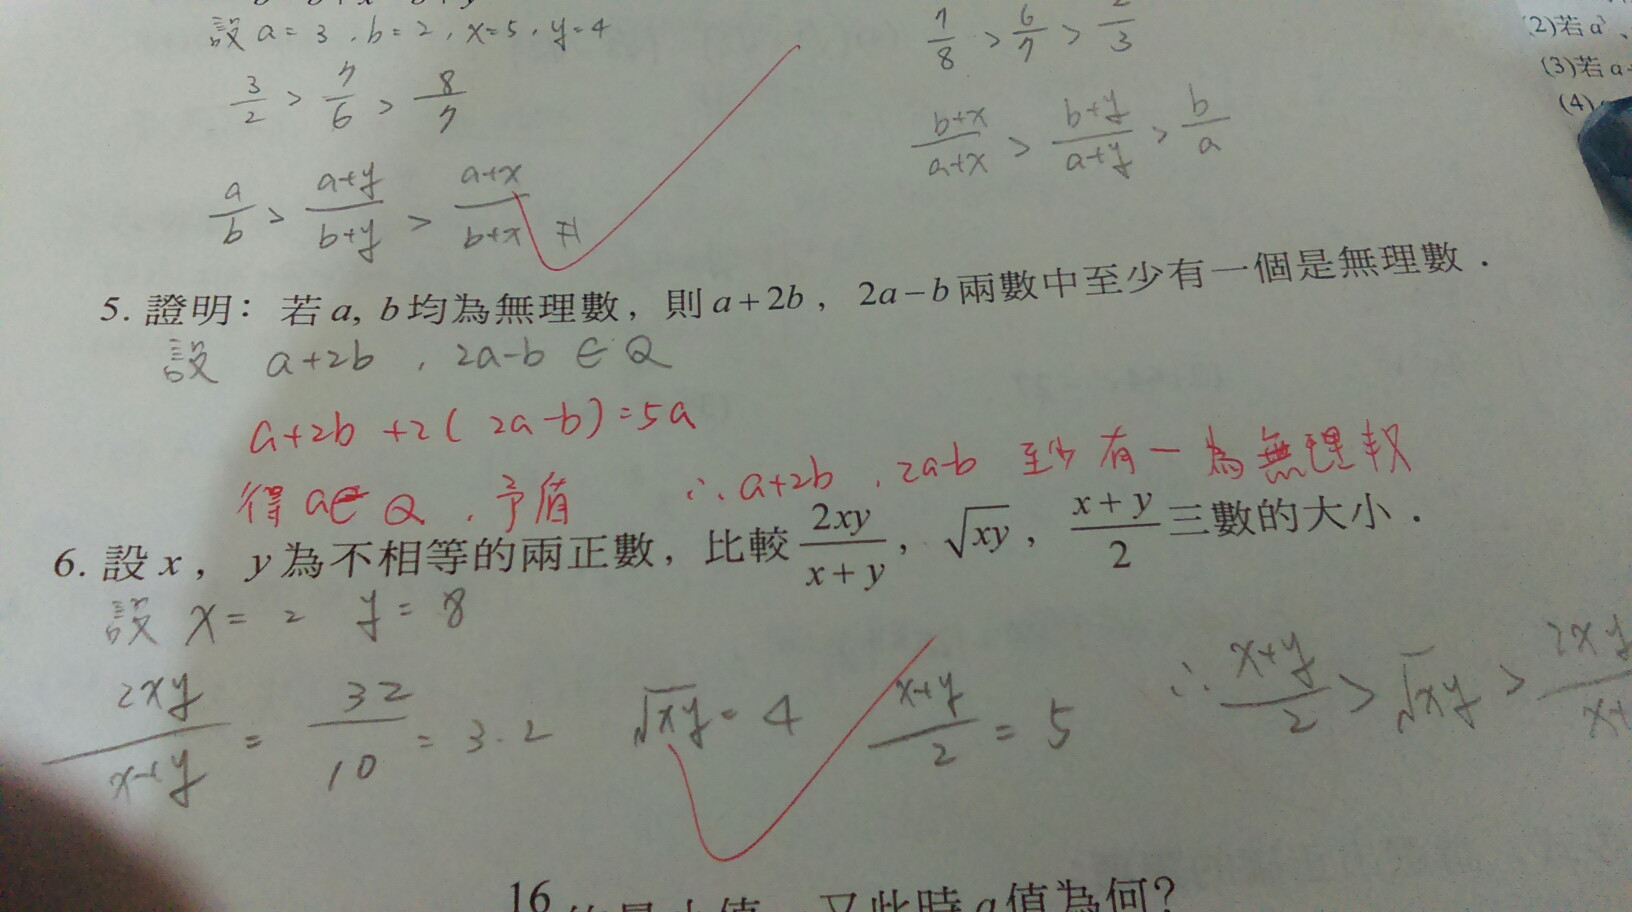 設 a = 3 , b = 2 , x = 5 , y = 4
3/2 > 7/6 > 8/7
a/b > (a+y)/(b+y) > (a+x)/(b+x) #
7/8 > 6/7 > 2/3
(b+x)/(a+x) > (b+y)/(a+y) > b/a
(2)若 a
(3)若 a
(4)
5. 證明：若 a, b 均為無理數，則 a + 2b， 2a − b 兩數中至少有一個是無理數．
設 a+2b , 2a-b ∈ Q
a+2b +2( 2a-b) = 5a
得 a∈ Q , 矛盾 ∴ a+2b , 2a-b 至少有一為無理數
6. 設 x， y 為不相等的兩正數，比較 2xy/(x + y)， √xy， (x + y)/2 三數的大小．
設 x = 2 y = 8
2xy/(x+y) = 32/10 = 3.2 √xy = 4 (x+y)/2 = 5 ∴ (x+y)/2 > √xy > 2xy/x+
16
值 又此時 a 值為何？